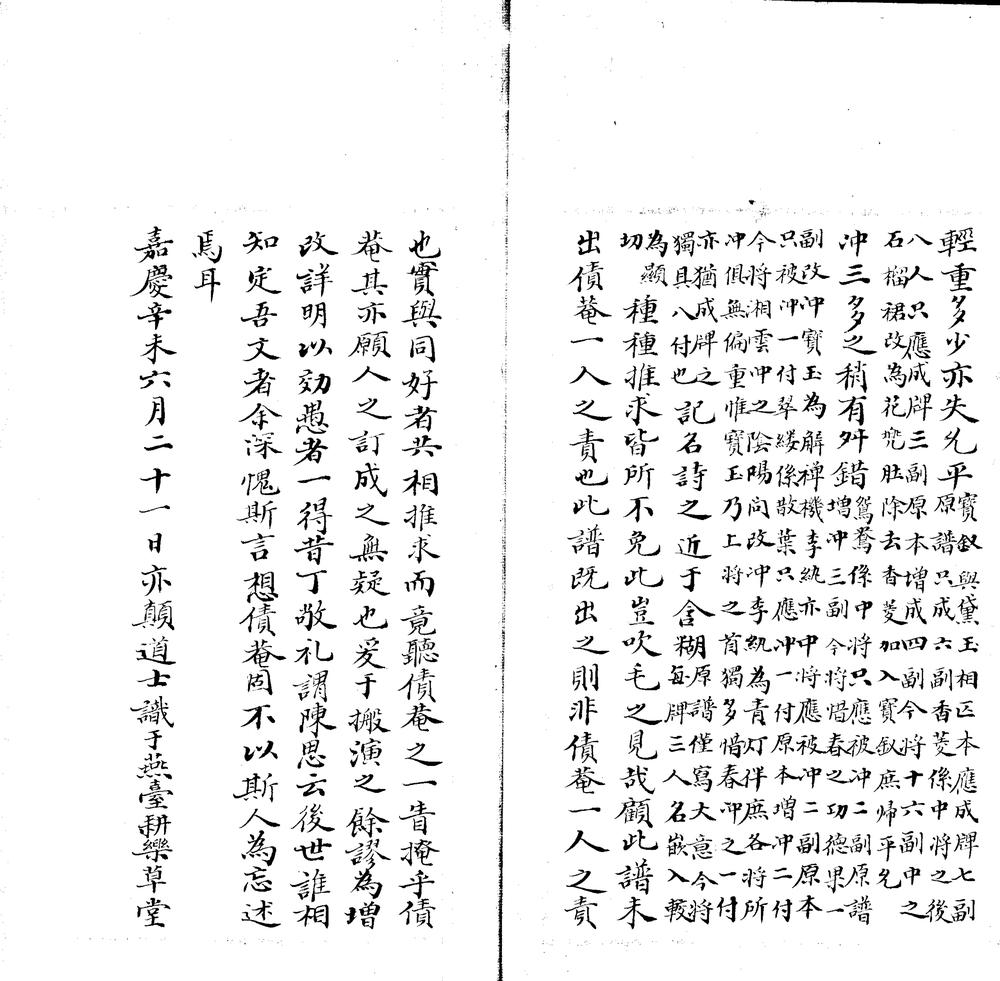 輕重多少亦失允平寶釵與黛玉相匹本應成牌七副
原譜只成六副香菱係中將之後
八人只應成牌三副原本增成四副今將十六副中之
石榴裙改為花兜肚除去香菱加入寶釵庶歸平允
冲三多之稍有舛錯鴛鴦係中將只應被冲二副原譜
增冲三副今將惜春之功德果一
副改冲寶玉為解禪機李紈亦中將應被冲二副原本
只被冲一付翠縷係散葉只應冲一付原本增冲二付
今將湘雲冲之陰陽問改冲李紈為青灯伴庶各將所
冲俱無偏重惟寶玉乃上將之首獨多惜春冲之一付
亦猶成牌之
獨具八付也記名詩之近于含糊原譜僅寫大意今將
每牌三人名嵌入較
為顯
切種種推求皆所不免此豈吹毛之見哉顧此譜未
出債菴一人之責也此譜既出之則非債菴一人之責
也實與同好者共相推求而竟聽債菴之一眚掩乎債
菴其亦願人之訂成之無疑也爰于搬演之餘謬為增
改詳明以効愚者一得昔丁敬礼謂陳思云後世誰相
知定吾文者余深愧斯言想債菴固不以斯人為忘述
焉耳
嘉慶辛未六月二十一日亦顛道士識于燕臺耕樂草堂